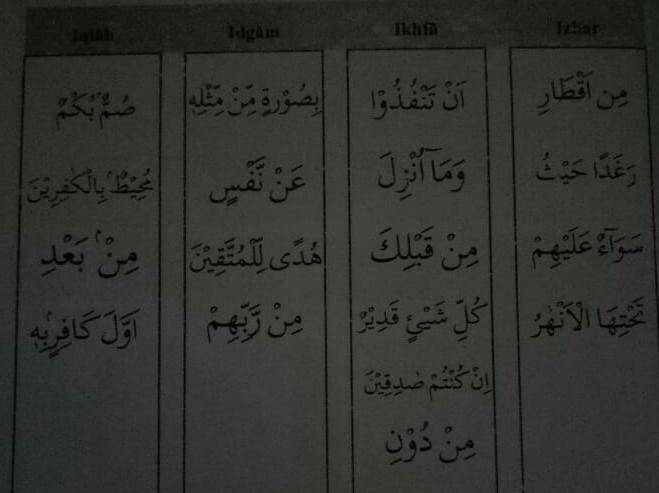 Iqlāb Idgām Ikhfā Izhar
صُمٌّۢ بُكْمٌ بِصُوْرَةٍ مِّنْ مِّثْلِهٖ اَنْ تَنْفُذُوْا مِن اَقْطَارِ
مُحِيْطٌۢ بِالْكٰفِرِيْنَ عَنْ نَّفْسٍ وَمَآ اُنْزِلَ رَغَدًا حَيْثُ
مِنْۢ بَعْدِ هُدًى لِّلْمُتَّقِيْنَ مِنْ قَبْلِكَ سَوَآءٌ عَلَيْهِمْ
اَوَّلَ كَافِرٍۢ بِهٖ مِنْ رَّبِّهِمْ كُلِّ شَيْئٍ قَدِيْرٌ تَحْتِهَا الْاَنْهٰرُ
اِنْ كُنْتُمْ صٰدِقِيْنَ
مِنْ دُوْنِ